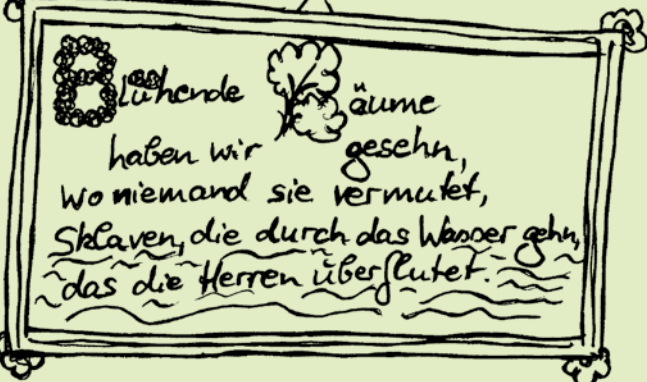 Blühende Bäume
haben wir gesehn,
wo niemand sie vermutet,
Sklaven, die durch das Wasser gehn,
das die Herren überflutet.